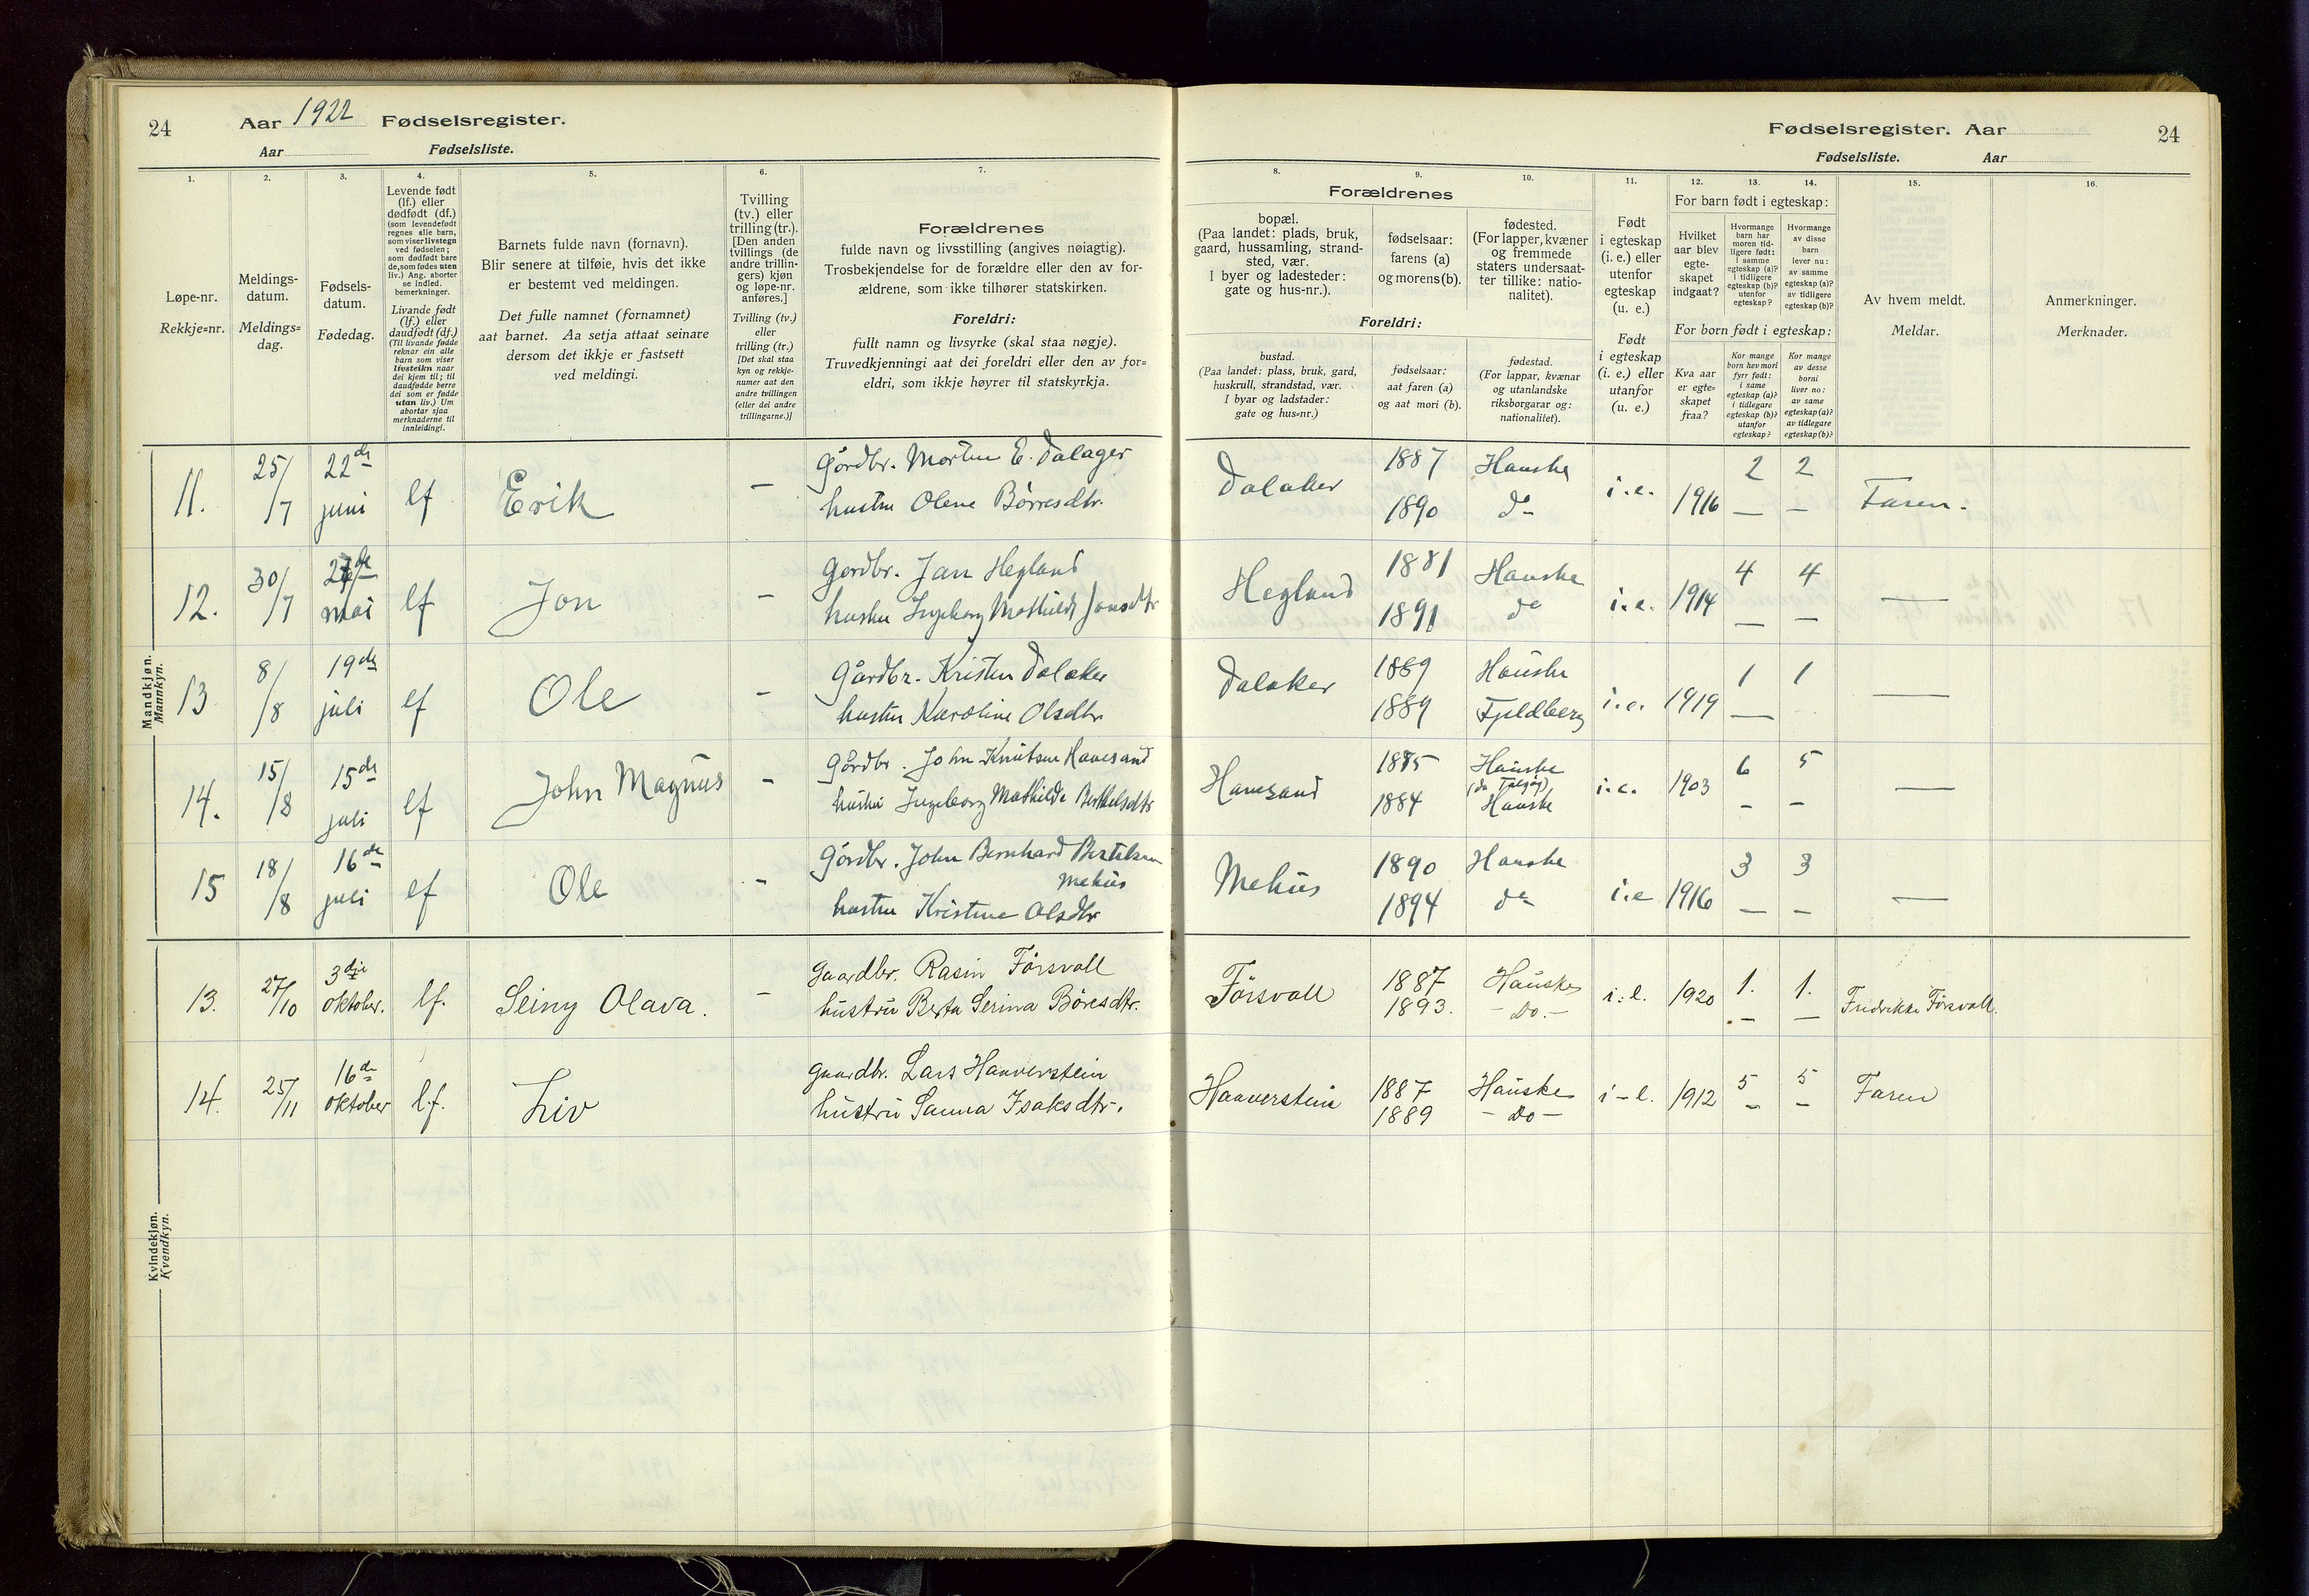 24
Aar 1922 Fødselsregister.
Aar Fødselsliste.
1.
2.
3.
4.
5.
6.
7.
Løpe-nr.
Rekkje=nr.
Meldings-
datum.
Meldings=
dag.
Fødsels-
datum.
Fødedag.
Levende født
(lf.) eller
dødfødt (df.)
(som levendefødt
regnes alle barn,
som viser livstegn
ved fødselen;
som dødfødt bare
de, som fødes uten
liv.) Ang. aborter
se indled.
bemerkninger.
Livande født
(lf.) eller
daudfødt (df.)
(Til livande fødde
reknar ein alle
barn som viser
livsteikn naar
dei kjem til; til
daudfødde berre
dei som er fødde
utan liv.) Um
abortar sjaa
merknaderne til
innleidingi.
Barnets fulde navn (fornavn).
Blir senere at tilføie, hvis det ikke
er bestemt ved meldingen.
Det fulle namnet (fornamnet)
aat barnet. Aa setja attaat seinare
dersom det ikkje er fastsett
ved meldingi.
Tvilling
(tv.) eller
trilling (tr.).
[Den anden
tvillings (de
andre trillin-
gers) kjøn
og løpe-nr.
anføres.]
Tvilling (tv.)
eller
trilling (tr.)
[Det skal staa
kyn og rekkje-
numer aat den
andre tvillingen
(eller dei andre
trillingarne.)]
Forældrenes
fulde navn og livsstilling (angives nøiagtig).
Trosbekjendelse for de forældre eller den av for-
ældrene, som ikke tilhører statskirken.
Foreldri:
fullt namn og livsyrke (skal staa nøgje).
Truvedkjenningi aat dei foreldri eller den av for=
eldri, som ikkje høyrer til statskyrkja.
Mandkjøn.
Mannkyn.
11. 25/7 22de juni lf Erik –
Gårdbr. Morten E. Dalager
hustru Olene Børresdtr.
12. 30/7 mai lf Jon –
Gardbr. Jan Hegland
hustru Ingeborg Mathilde Jansdtr
13 8/8 19de juli lf Ole –
Gårdbr. Kristen Dalaker
hustru Karoline Olsdtr
14. 15/8 15de juli lf John Magnus –
Gårdbr. John Knutsen Havesand
hustru Ingeborg Mathilde Berthelsdtr
15 18/8 16de juli lf Ole –
Gårdbr. John Bernhard Bertelsen
Mehus
hustru Kristine Olsdtr
Kvindekjøn.
Kvendkyn.
13. 27/10 3dje oktober. lf. Seiny Olava. –
Gaardbr. Rasin Førsvoll
hustru Berta Serina Børesdtr.
14. 25/11 16de oktober l.f. Liv
Gaardbr. Lars Haaverstein
hustru Sanna Isaksdtr.
Fødselsregister. Aar
24
Fødselsliste. Aar
8.
9.
10.
11.
12.
13.
14.
15.
16.
Forældrenes
bopæl.
(Paa landet: plads, bruk,
gaard, hussamling, strand-
sted, vær.
I byer og ladesteder:
gate og hus-nr.).
fødselsaar:
farens (a)
og morens (b).
fødested.
(For lapper, kvæner
og fremmede
staters undersaat-
ter tillike: natio-
nalitet).
Foreldri:
bustad.
(Paa landet: plass, bruk, gard,
huskrull, strandstad, vær.
I byar og ladstader:
gate og hus=nr.)
fødselsaar:
aat faren (a)
og aat mori (b).
fødestad.
(For lappar, kvænar
og utanlandske
riksborgarar og:
nationalitet).
Født
i egteskap
(i. e.) eller
utenfor
egteskap
(u. e.)
Født
i egteskap
(i. e.) eller
utanfor
(u. e.)
For barn født i egteskap:
Hvilket
aar blev
egte-
skapet
indgaat?
Hvormange
barn har
moren tid-
ligere født:
i samme
egteskap (a)?
i tidligere
egteskap (b)?
utenfor
egteskap?
Hvormange
av disse
barn
lever nu:
av samme
egteskap (a)?
av tidligere
egteskap (b)?
For born født i egteskap:
Kva aar
er egte=
skapet
fraa?
Kor mange
born hev mori
fyrr født:
i same
egteskap (a)?
i tidlegare
egteskap (b)?
utanfor
egteskap?
Kor mange
av desse
borni
liver no:
av same
egteskap (a)?
av tidlegare
egteskap (b)?
Av hvem meldt.
Meldar.
Anmerkninger.
Merknader.
Dalaker 1887 Hauske i.e. 1916 2 2 Faren.
1890 do – –
Hegland 1881 Hauske i.e. 1914 4 4 —
1891 do – –
Dalaker 1889 Hauske i.e. 1919 1 1 —
1889 Fjeldberg —
Havesand 1885 Hauske i.e. 1903 6 5 —
1884 Hauske – –
Mehus 1890 Hauske i.e 1916 3 3 —
1894 do – –
Førsvoll 1887 Hauske i.e. 1920 1. 1. Fredrikke Førsvoll.
1893. – Do. – – –
Haaverstein 1887 Hauske i-e. 1912 5 5 Faren
1889 – Do – – –